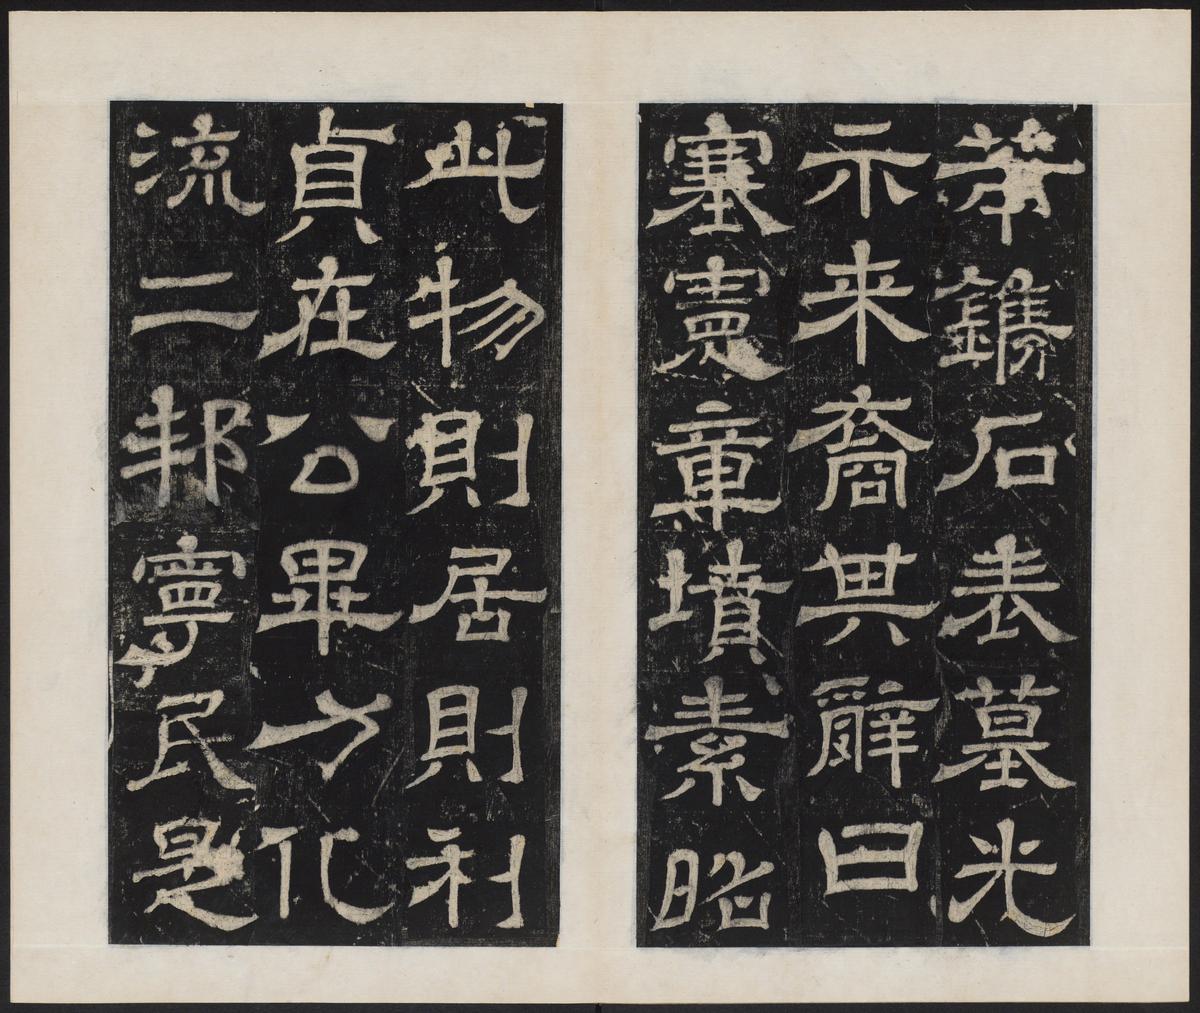 鐫石表墓光
示来裔其辭曰
塞憲章墳素昭
此物則居則利
貞在公畢力化
流二邦寧民是